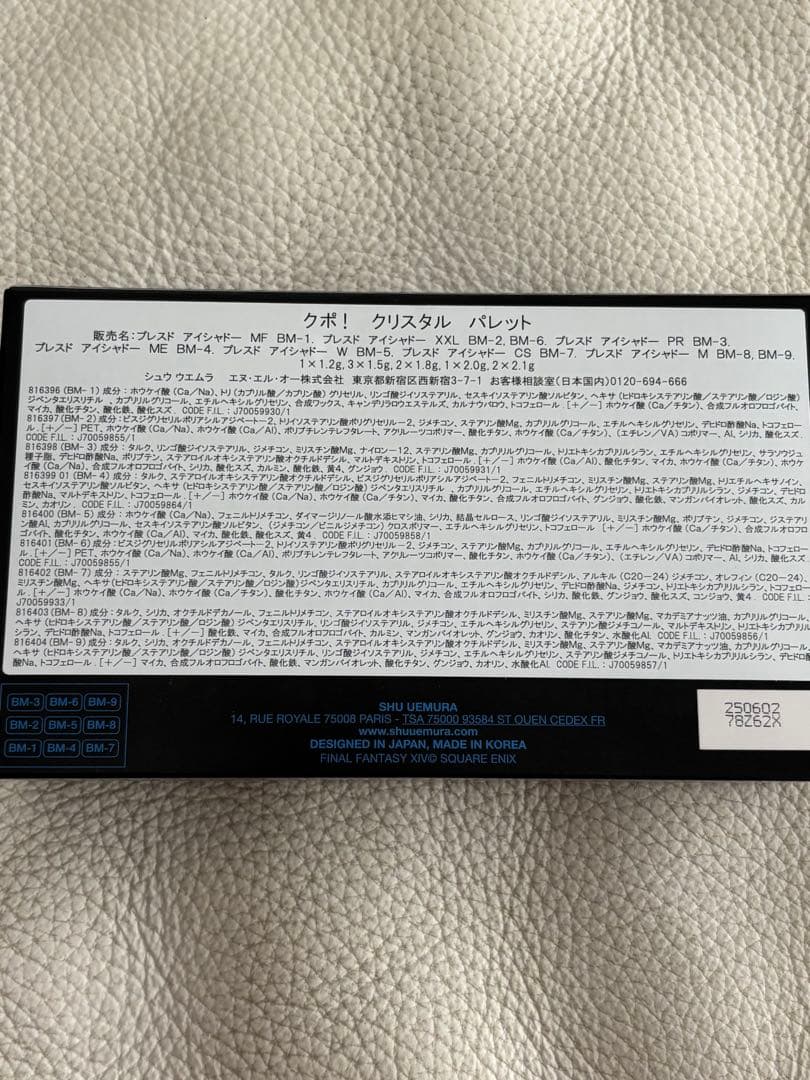 クポ！ クリスタル パレット
販売名：プレスド アイシャドー MF BM-1. プレスド アイシャドー XXL BM-2, BM-6. プレスド アイシャドー PR BM-3.
プレスド アイシャドー ME BM-4. プレスド アイシャドー W BM-5. プレスド アイシャドー CS BM-7. プレスド アイシャドー M BM-8, BM-9.
1×1.2g, 3×1.5g, 2×1.8g, 1×2.0g, 2×2.1g
シュウ ウエムラ エヌ・エル・オー株式会社 東京都新宿区西新宿3-7-1 お客様相談室(日本国内)0120-694-666
816396 (BM- 1) 成分：ホウケイ酸 (Ca／Na)、トリ (カプリル酸／カプリン酸) グリセリル、リンゴ酸ジイソステアリル、セスキイソステアリン酸ソルビタン、ヘキサ (ヒドロキシステアリン酸／ステアリン酸／ロジン酸)
ジペンタエリスリチル 、カプリリルグリコール、エチルヘキシルグリセリン、合成ワックス、キャンデリラロウエステルズ、カルナウバロウ、トコフェロール . [＋／－] ホウケイ酸 (Ca／チタン)、合成フルオロフロゴパイト、
マイカ、酸化チタン、酸化鉄、酸化スズ . CODE F.I.L. : J70059930/1
816397 (BM- 2) 成分：ビスジグリセリルポリアシルアジペート-2、トリイソステアリン酸ポリグリセリル-2、ジメチコン、ステアリン酸Mg、カプリリルグリコール、エチルヘキシルグリセリン、デヒドロ酢酸Na、トコフェロー
ル . [＋／－] PET、ホウケイ酸 (Ca／Na)、ホウケイ酸 (Ca／Al)、ポリブチレンテレフタレート、アクリレーツコポリマー、酸化チタン、ホウケイ酸 (Ca／チタン)、(エチレン／VA) コポリマー、Al、シリカ、酸化スズ .
CODE F.I.L. : J70059855/1
816398 (BM- 3) 成分：タルク、リンゴ酸ジイソステアリル、ジメチコン、ミリスチン酸Mg、ナイロン-12、ステアリン酸Mg、カプリリルグリコール、トリエトキシカプリリルシラン、エチルヘキシルグリセリン、サラソウジュ
種子脂、デヒドロ酢酸Na、ポリブテン、ステアロイルオキシステアリン酸オクチルドデシル、マルトデキストリン、トコフェロール . [＋／－] ホウケイ酸 (Ca／Al)、酸化チタン、マイカ、ホウケイ酸 (Ca／チタン)、ホウケ
イ酸 (Ca／Na)、合成フルオロフロゴパイト、シリカ、酸化スズ、カルミン、酸化鉄、黄4、グンジョウ . CODE F.I.L. : J70059931/1
816399 01 (BM- 4) 成分：タルク、ステアロイルオキシステアリン酸オクチルドデシル、ビスジグリセリルポリアシルアジペート-2、フェニルトリメチコン、ミリスチン酸Mg、ステアリン酸Mg、トリエチルヘキサノイン、
セスキイソステアリン酸ソルビタン、ヘキサ (ヒドロキシステアリン酸／ステアリン酸／ロジン酸) ジペンタエリスリチル 、カプリリルグリコール、エチルヘキシルグリセリン、トリエトキシカプリリルシラン、ジメチコン、デヒドロ
酢酸Na、マルトデキストリン、トコフェロール . [＋／－] ホウケイ酸 (Ca／Na)、ホウケイ酸 (Ca／チタン)、マイカ、酸化チタン、合成フルオロフロゴパイト、グンジョウ、酸化鉄、マンガンバイオレット、酸化スズ、カル
ミン、カオリン . CODE F.I.L. : J70059864/1
816400 (BM- 5) 成分：ホウケイ酸 (Ca／Na)、フェニルトリメチコン、ダイマージリノール酸水添ヒマシ油、シリカ、結晶セルロース、リンゴ酸ジイソステアリル、ミリスチン酸Mg、ポリブテン、ジメチコン、ジステアリ
ン酸Al、カプリリルグリコール、セスキイソステアリン酸ソルビタン、(ジメチコン／ビニルジメチコン) クロスポリマー、エチルヘキシルグリセリン、トコフェロール . [＋／－] ホウケイ酸 (Ca／チタン)、合成フルオロフロゴ
パイト、酸化チタン、ホウケイ酸 (Ca／Al)、マイカ、酸化鉄、酸化スズ、黄4 . CODE F.I.L. : J70059858/1
816401 (BM- 6) 成分：ビスジグリセリルポリアシルアジペート-2、トリイソステアリン酸ポリグリセリル-2、ジメチコン、ステアリン酸Mg、カプリリルグリコール、エチルヘキシルグリセリン、デヒドロ酢酸Na、トコフェロー
ル . [＋／－] PET、ホウケイ酸 (Ca／Na)、ホウケイ酸 (Ca／Al)、ポリブチレンテレフタレート、アクリレーツコポリマー、酸化チタン、ホウケイ酸 (Ca／チタン)、(エチレン／VA) コポリマー、Al、シリカ、酸化スズ .
CODE F.I.L. : J70059855/1
816402 (BM- 7) 成分：ステアリン酸Mg、フェニルトリメチコン、タルク、リンゴ酸ジイソステアリル、ステアロイルオキシステアリン酸オクチルドデシル、アルキル (C20-24) ジメチコン、オレフィン (C20-24)、
ミリスチン酸Mg、ヘキサ (ヒドロキシステアリン酸／ステアリン酸／ロジン酸) ジペンタエリスリチル、カプリリルグリコール、エチルヘキシルグリセリン、デヒドロ酢酸Na、ジメチコン、トリエトキシカプリリルシラン、トコフェロー
ル . [＋／－] ホウケイ酸 (Ca／Na)、ホウケイ酸 (Ca／チタン)、酸化チタン、ホウケイ酸 (Ca／Al)、マイカ、合成フルオロフロゴパイト、シリカ、酸化鉄、グンジョウ、酸化スズ、コンジョウ、黄4 . CODE F.I.L. :
J70059933/1
816403 (BM- 8) 成分：タルク、シリカ、オクチルドデカノール、フェニルトリメチコン、ステアロイルオキシステアリン酸オクチルドデシル、ミリスチン酸Mg、ステアリン酸Mg、マカデミアナッツ油、カプリリルグリコール、
ヘキサ (ヒドロキシステアリン酸／ステアリン酸／ロジン酸) ジペンタエリスリチル、リンゴ酸ジイソステアリル、ジメチコン、エチルヘキシルグリセリン、ステアリン酸ジメチコノール、マルトデキストリン、トリエトキシカプリリル
シラン、デヒドロ酢酸Na、トコフェロール . [＋／－] 酸化鉄、マイカ、合成フルオロフロゴパイト、カルミン、マンガンバイオレット、グンジョウ、カオリン、酸化チタン、水酸化Al. CODE F.I.L. : J70059856/1
816404 (BM- 9) 成分：タルク、シリカ、オクチルドデカノール、フェニルトリメチコン、ステアロイルオキシステアリン酸オクチルドデシル、ミリスチン酸Mg、ステアリン酸Mg、マカデミアナッツ油、カプリリルグリコール、
ヘキサ (ヒドロキシステアリン酸／ステアリン酸／ロジン酸) ジペンタエリスリチル、リンゴ酸ジイソステアリル、ジメチコン、エチルヘキシルグリセリン、ステアリン酸ジメチコノール、トリエトキシカプリリルシラン、デヒドロ酢酸
Na、トコフェロール . [＋／－] マイカ、合成フルオロフロゴパイト、酸化鉄、マンガンバイオレット、酸化チタン、グンジョウ、カオリン、水酸化Al. CODE F.I.L. : J70059857/1
BM-3 BM-6 BM-9
BM-2 BM-5 BM-8
BM-1 BM-4 BM-7
SHU UEMURA
14, RUE ROYALE 75008 PARIS - TSA 75000 93584 ST OUEN CEDEX FR
www.shuuemura.com
DESIGNED IN JAPAN, MADE IN KOREA
FINAL FANTASY XIV© SQUARE ENIX
250602
78Z62X